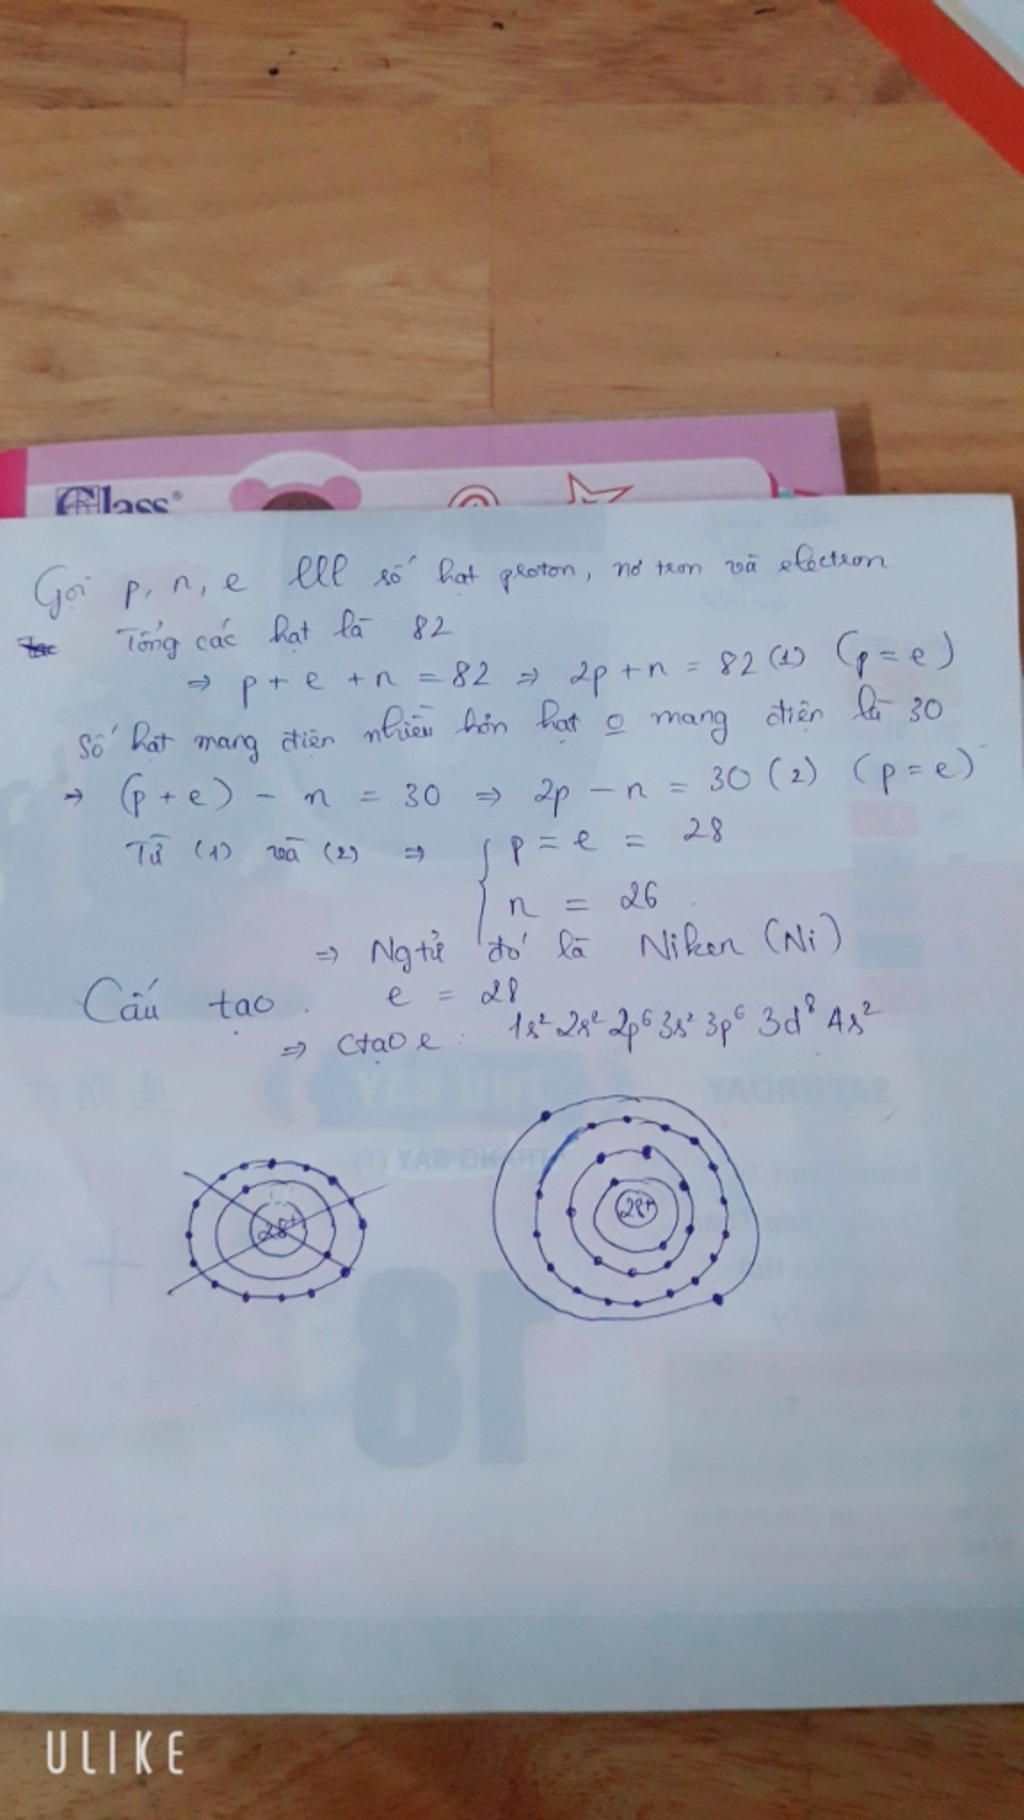 Class®
Gọi p, n, e lll số hạt proton, nơ tron và electron
Tổng các hạt là 82
⇒ p + e + n = 82 ⇒ 2p + n = 82 (1) (p = e)
Số hạt mang điện nhiều hơn hạt o mang điện là 30
→ (p + e) - n = 30 ⇒ 2p - n = 30 (2) (p = e)
Từ (1) và (2) ⇒ { p = e = 28
n = 26
⇒ Ngtử đó là Niken (Ni)
Cấu tạo e = 28
⇒ Ctạo e : 1s² 2s² 2p⁶ 3s² 3p⁶ 3d⁸ 4s²
28+ 28+
SATURDAY
18
ULIKE